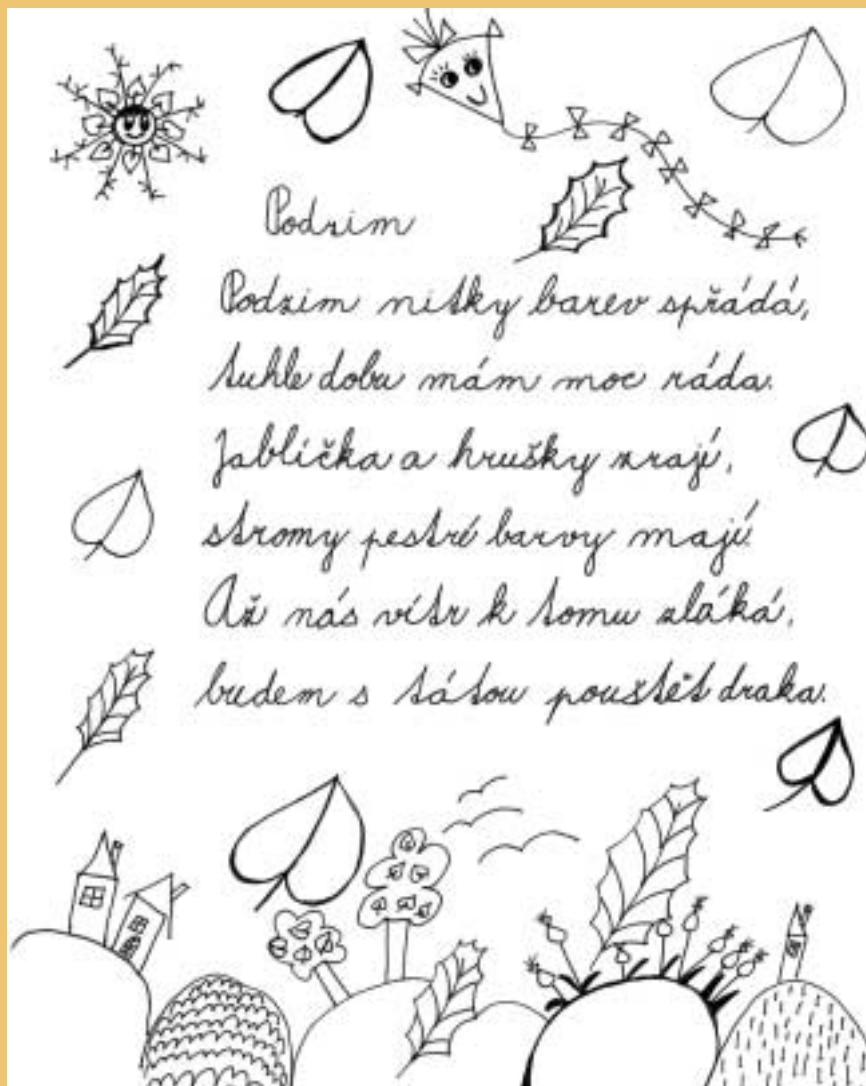 Podzim
Podzim nitky barev spřádá,
tuhle dobu mám moc ráda.
Jablíčka a hrušky zrají,
stromy pestré barvy mají.
Až nás vítr k tomu zláká,
budem s tátou pouštět draka.